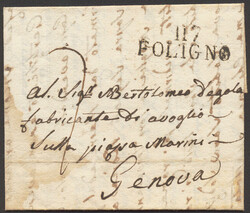 117
FOLIGNO
Al Sigr Bertolomeo Dagola
fabricante di avoglio
Sulla piassa Marini
Genova